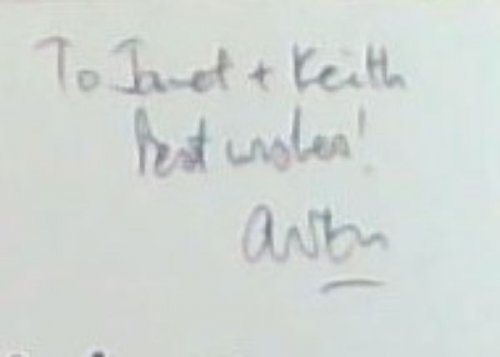 To Janet + Keith
Best wishes!